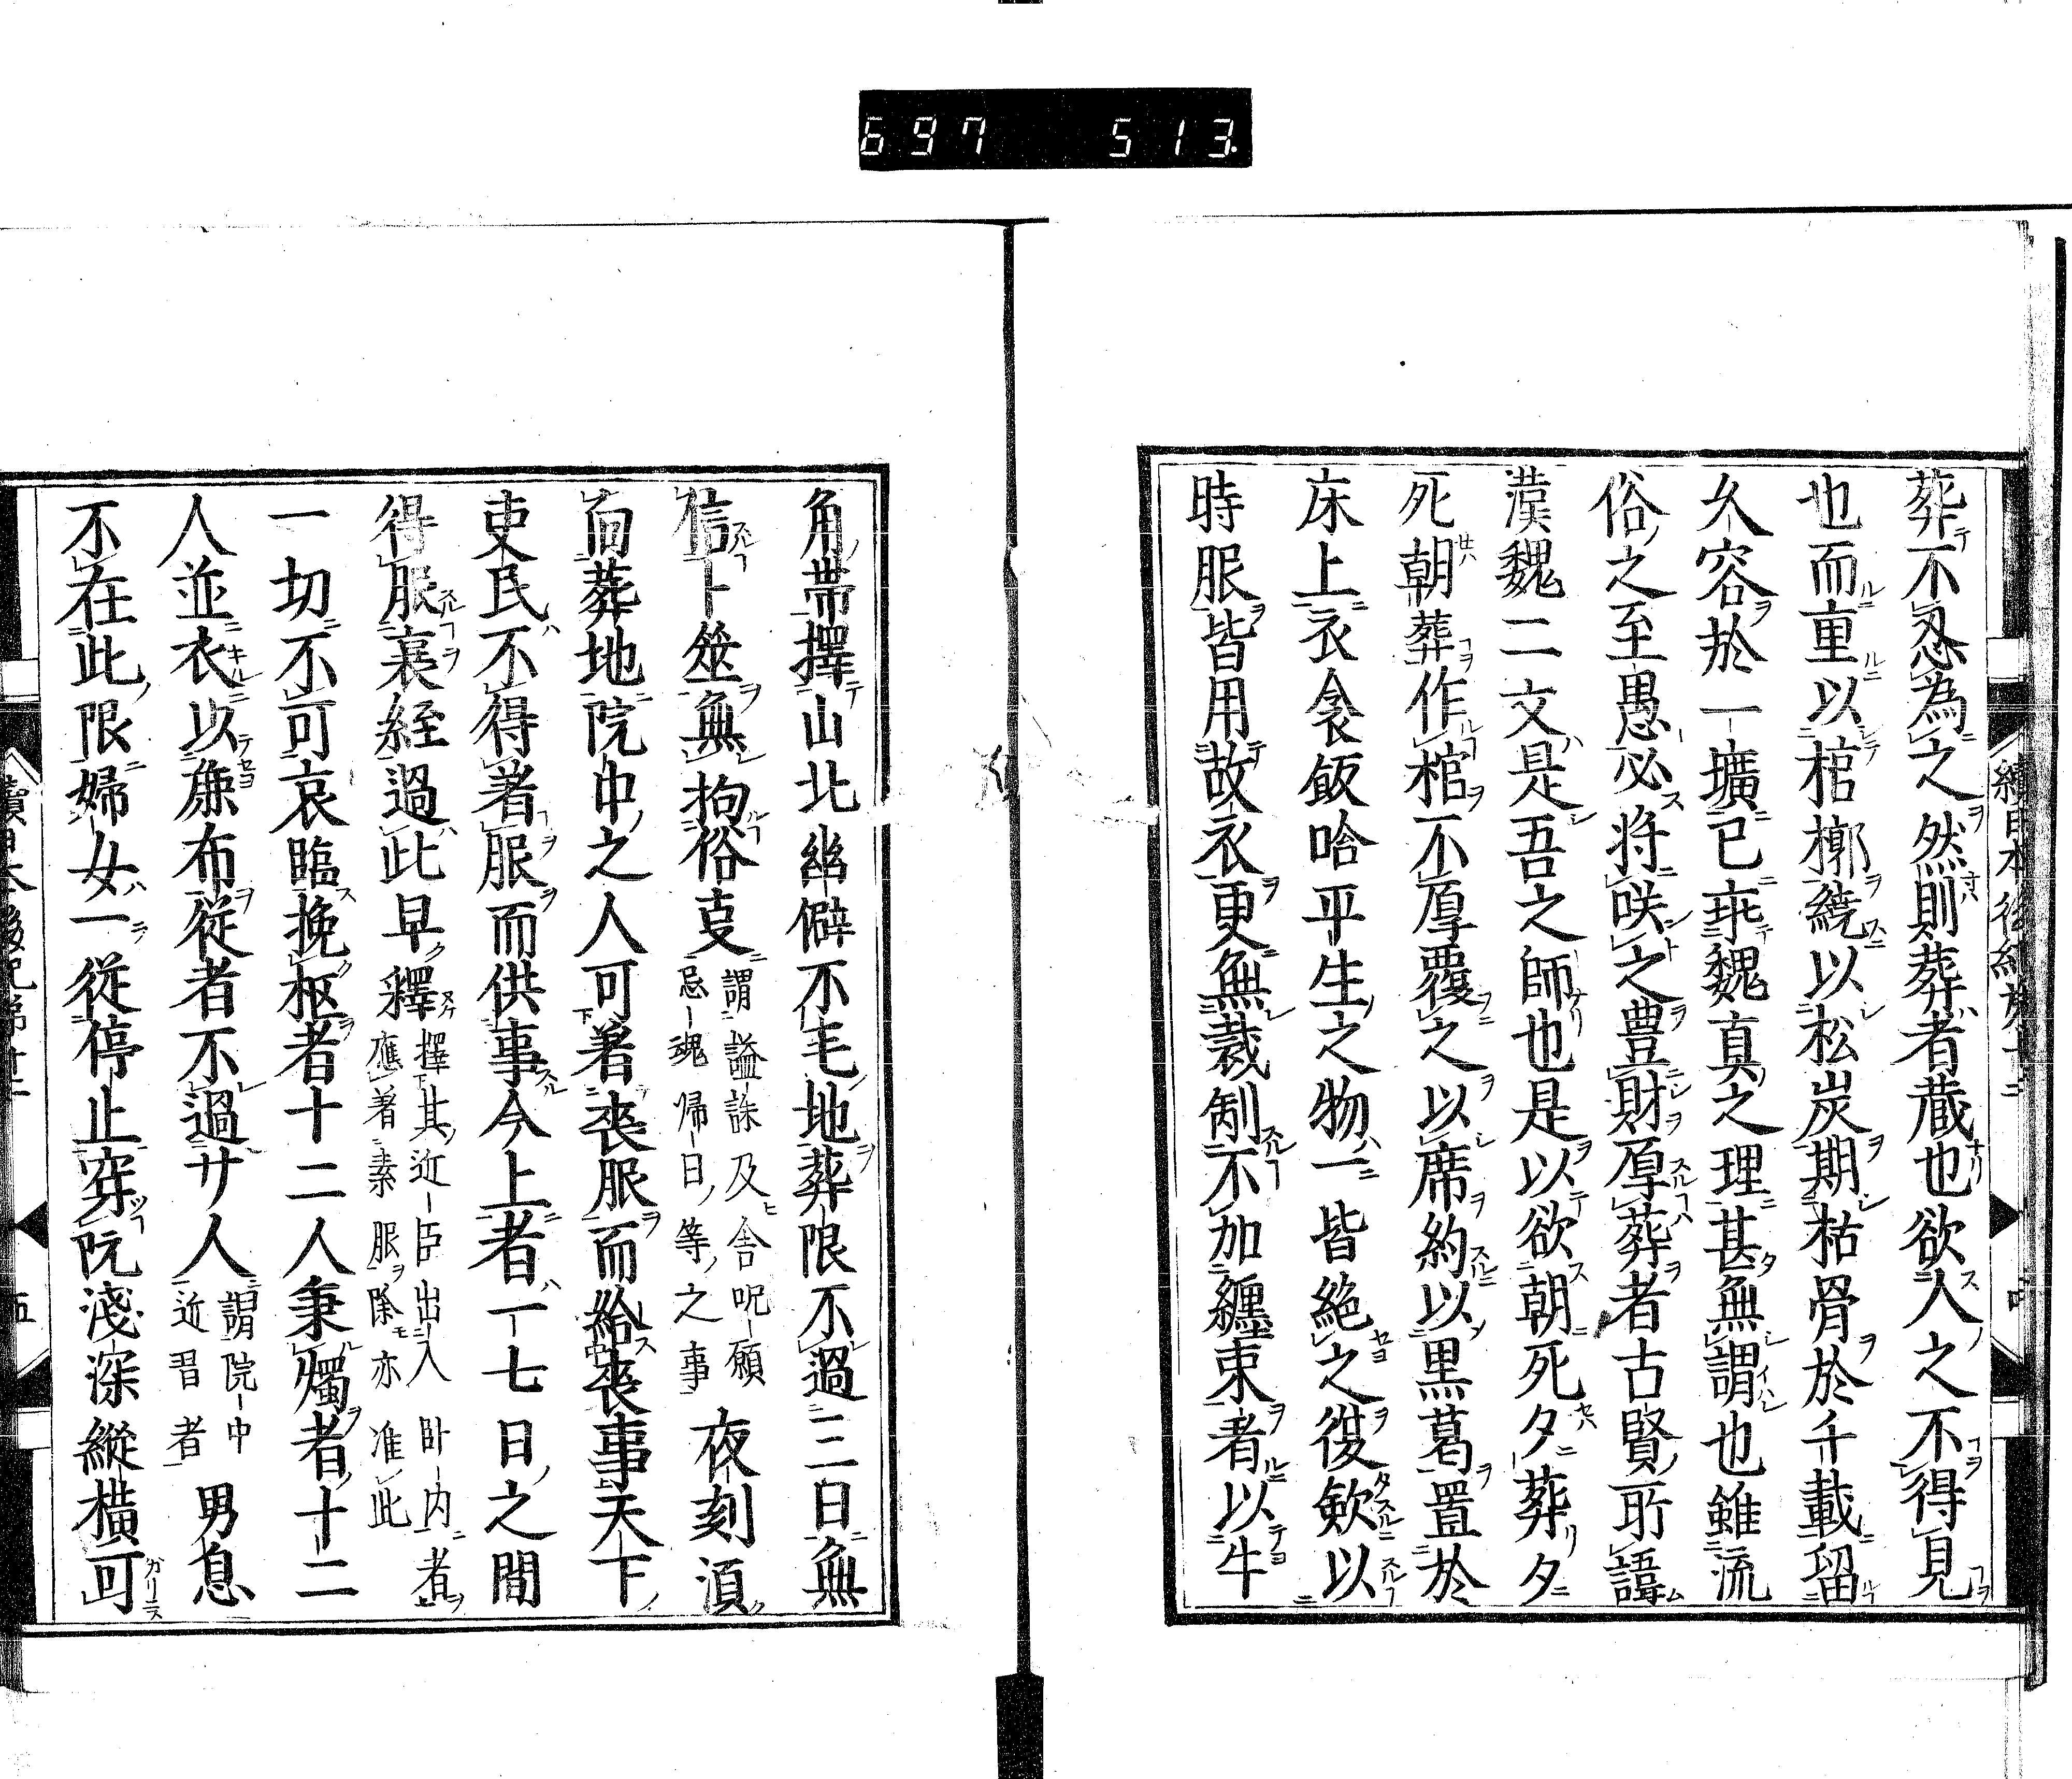 697 513
葬不忍為之然則葬者蔵也欲人之不得見
也而重以棺槨繞以松炭期枯骨於千載留
久容於一壙已乖魏真之理甚無謂也雖流
俗之至愚必将咲之豊財厚葬者古賢所諱
漢魏二文是吾之師也是以欲朝死夕葬夕
死朝葬作棺不厚覆之以席約以黒葛置於
床上衣衾飯唅平生之物一皆絶之復斂以
時服皆用故衣更無裁制不加纏束者以牛
角帯擇山北幽僻不毛地葬限不過三日無
信卜筮無拘俗事謂謚誄及含呪願忌魂帰日等之事夜刻須
向葬地院中之人可著喪服而給喪事天下
吏民不得著服而供事今上者一七日之間
得服衰絰過此早釋擇其近臣出入臥内者應著素服除亦准此
一切不可哀臨挽柩者十二人秉燭者十二
人並衣以麁布従者不過廿人謂院中近習者男息
不在此限婦女一従停止穿阬淺深縦横可